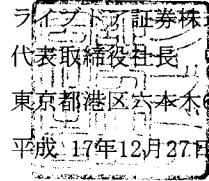 ライブドア証券株
代表取締役社長
東京都港区六本木6
平成 17年12月27日